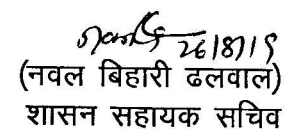 26/8/19
(नवल बिहारी ढलवाल)
शासन सहायक सचिव